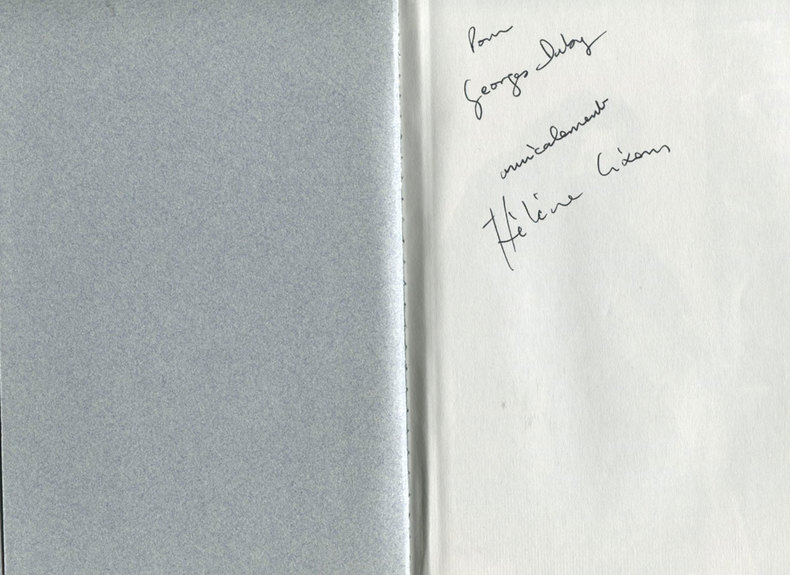 Pour
Georges Duby
amicalement
Hélène Cixous